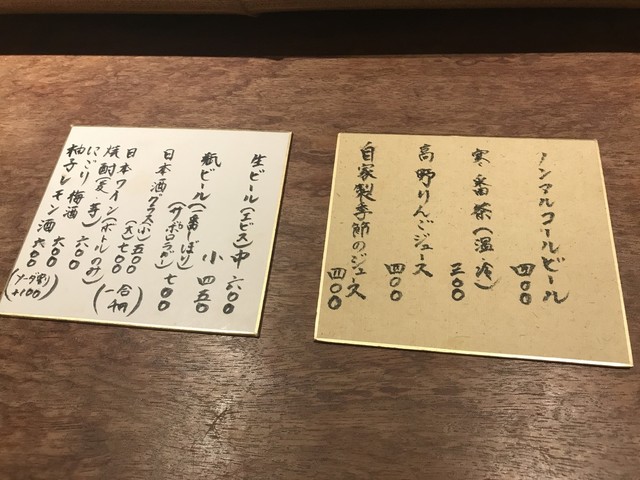 生ビール(エビス)中 六〇〇
瓶ビール(一番しぼり)小 四五〇
(サッポロラガー) 七〇〇
日本酒グラス(小)五〇〇
(大)七〇〇
(一合
日本ワイン(ボトルのみ)
焼酎(麦、芋) 六〇〇
にごり梅酒 六〇〇
柚子レモン酒 六〇〇
(ソーダ割り
+100)
ノンアルコールビール 四〇〇
寒番茶(温・冷) 三〇〇
高野りんごジュース 四〇〇
自家製季節のジュース 四〇〇